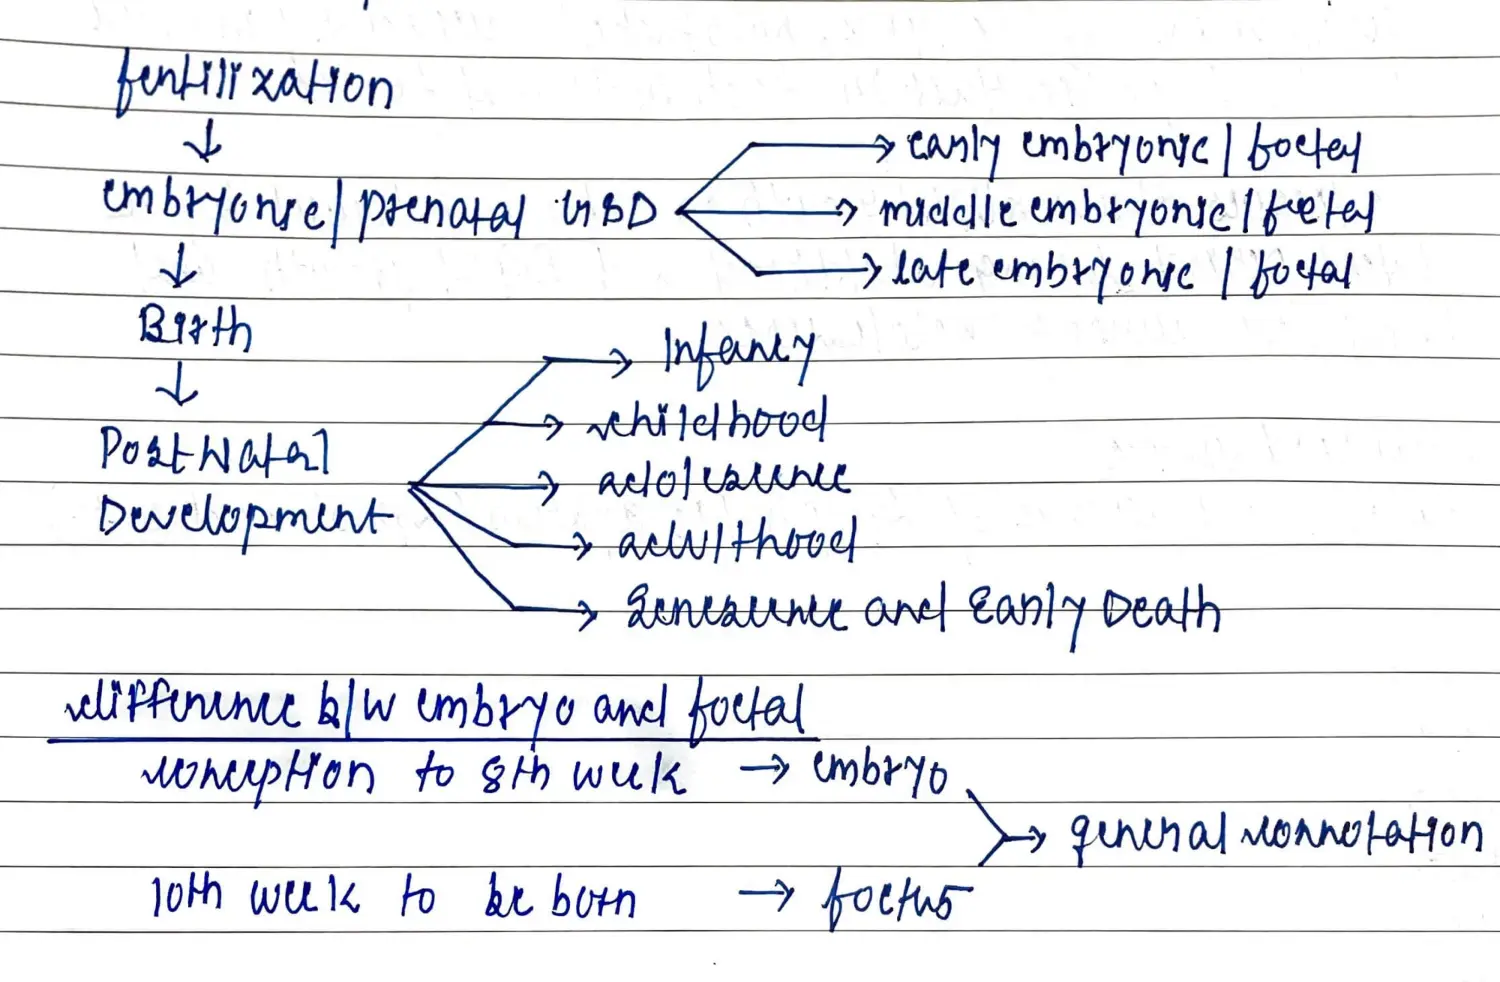 fertilization
↓
embryonic/prenatal G&D → early embryonic/foetal
→ middle embryonic/foetal
→ late embryonic/foetal
↓
Birth
↓
PostNatal Development → Infancy
→ childhood
→ adolescence
→ adulthood
→ Senescence and Early Death
difference b/w embryo and foetal
conception to 8th week → embryo
→ general connotation
10th week to be born → foetus